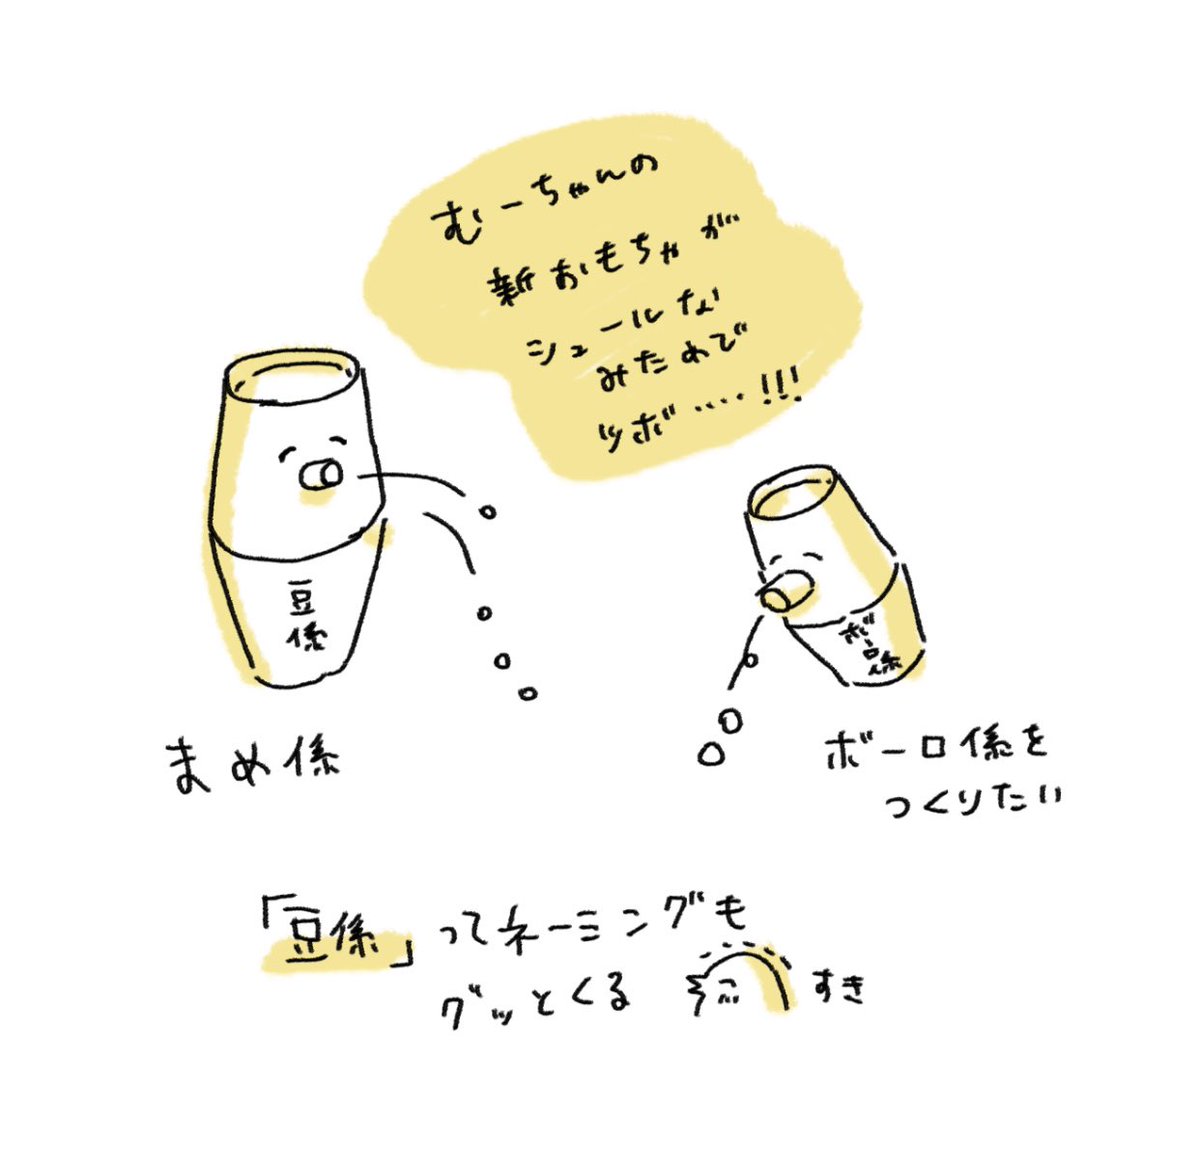 むーちゃんの
新おもちゃが
シュールな
みためで
ツボ‥‥!!!
豆
係
まめ係
ボーロ係
ボーロ係を
つくりたい
「豆係」ってネーミングも
グッとくる
すき